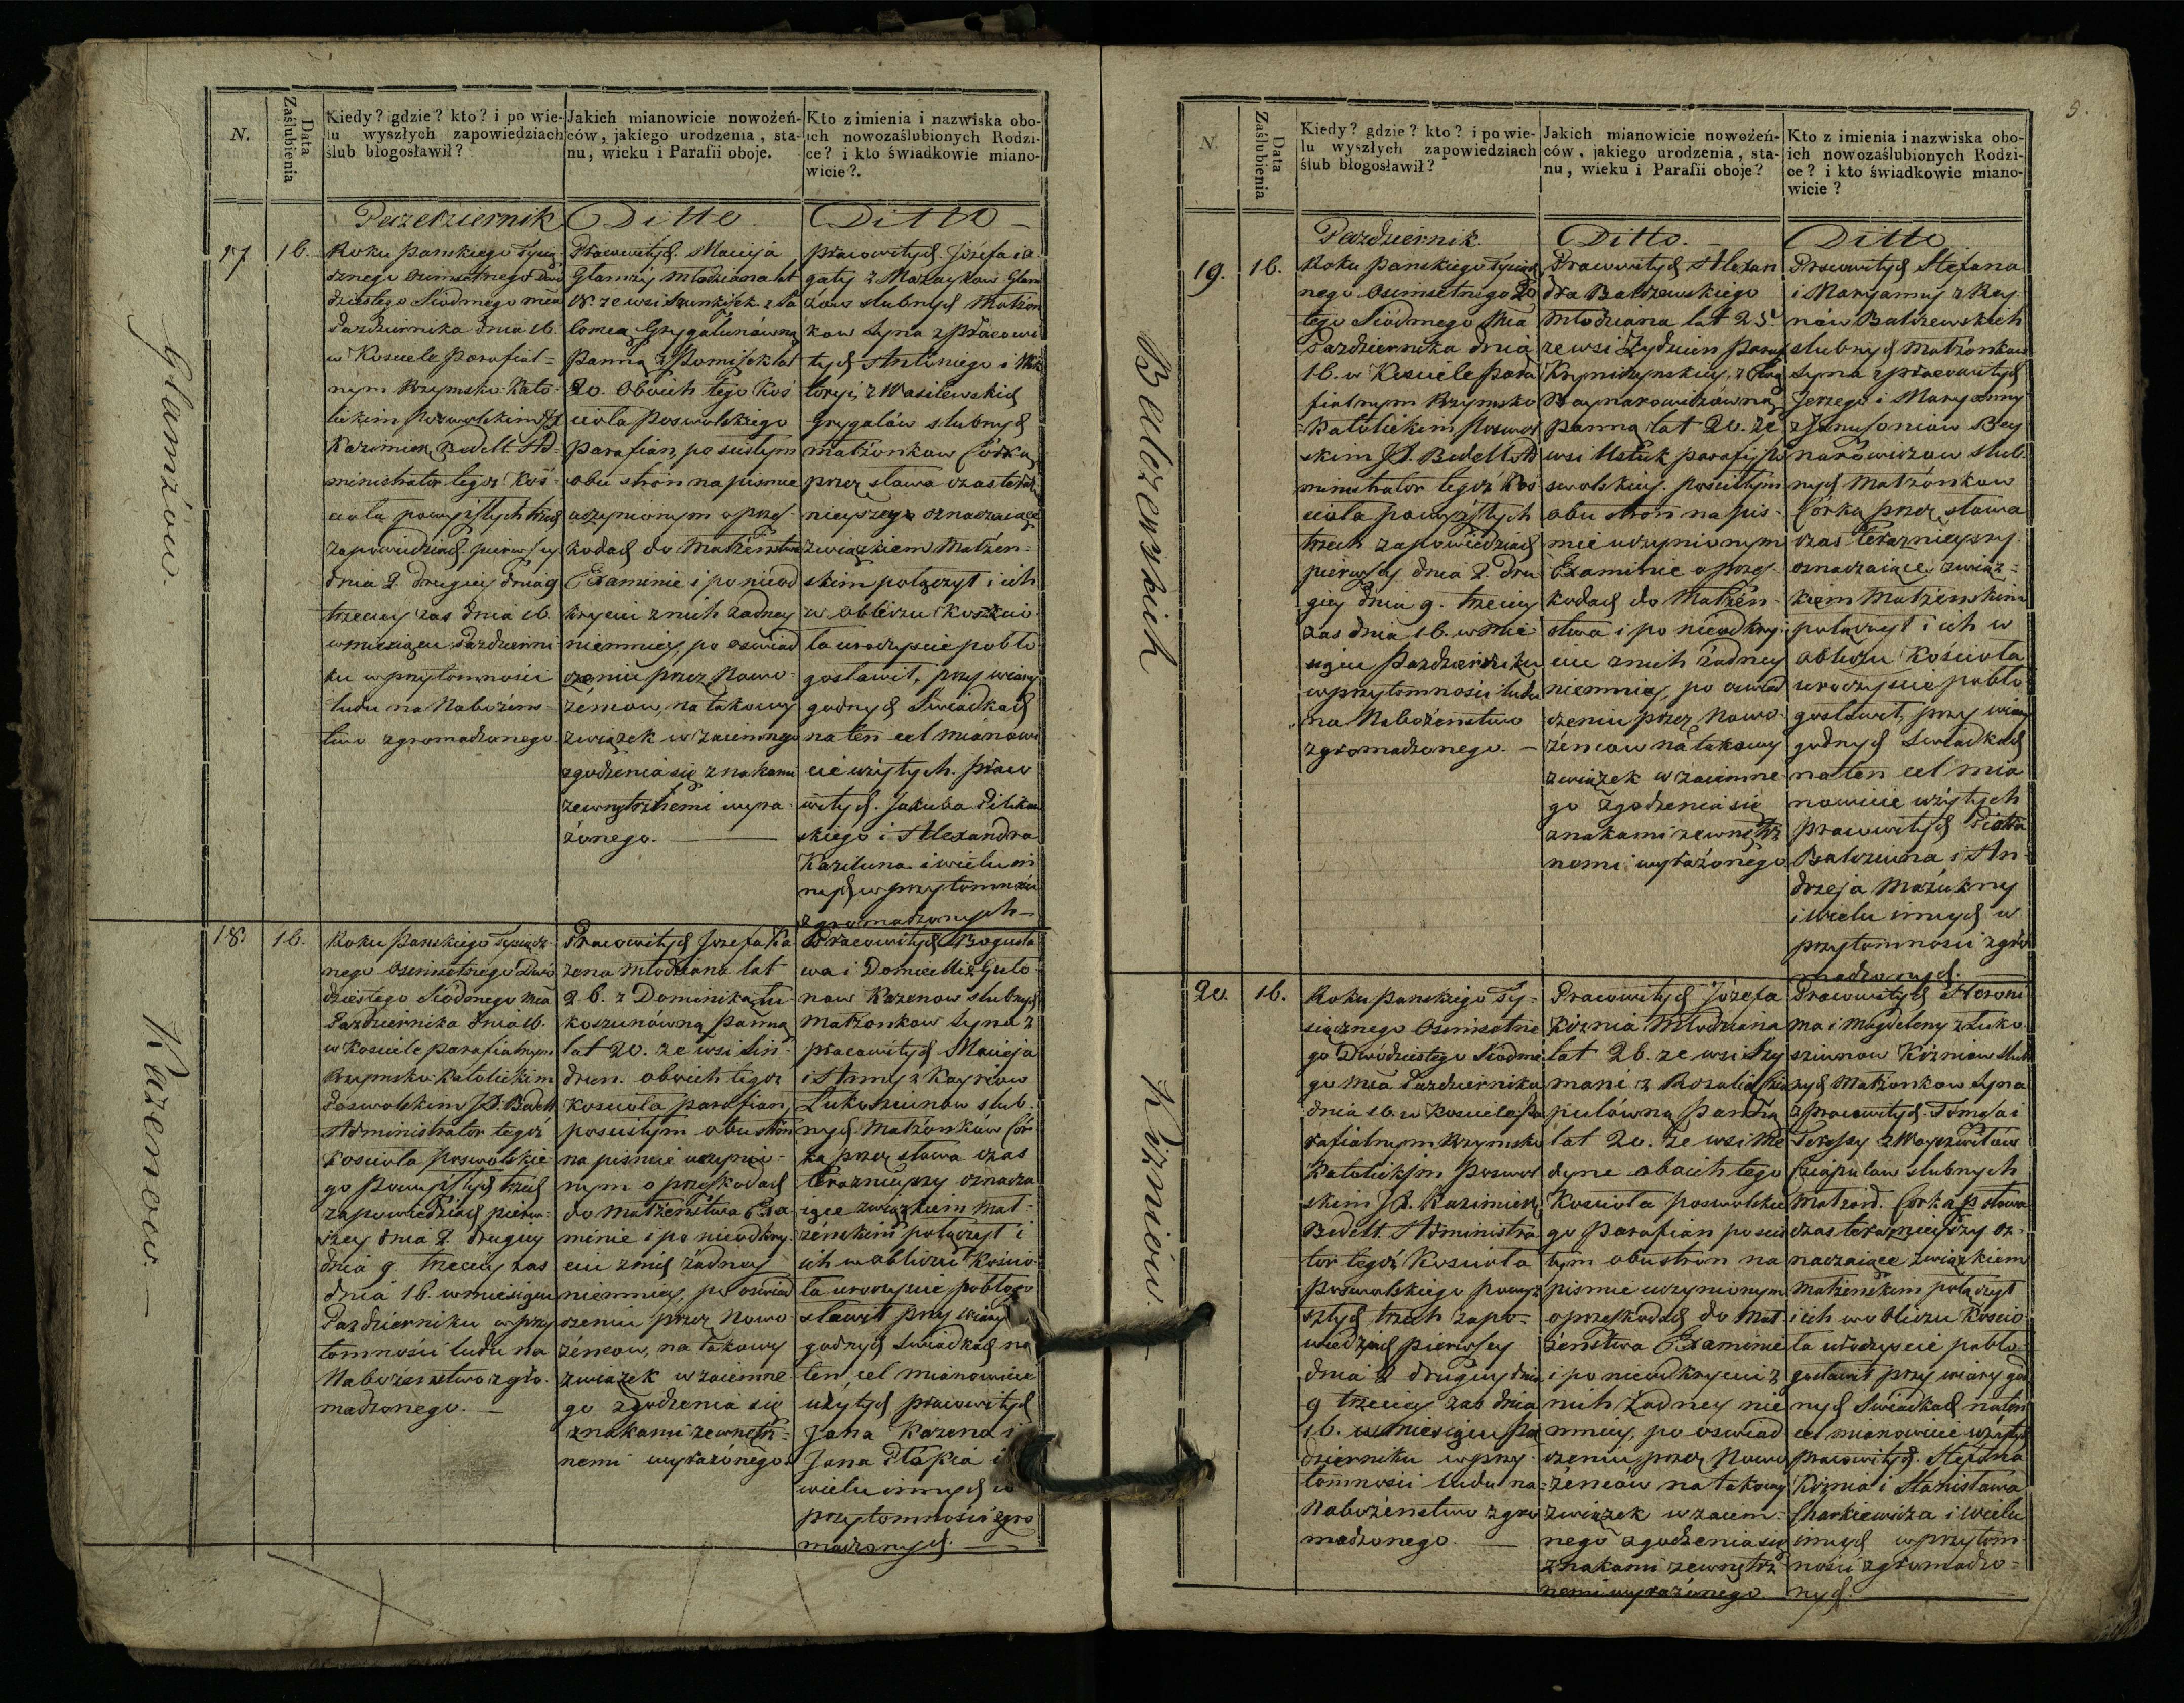 N.
Data Zaślubienia
Kiedy? gdzie? kto? i po wie-
lu wyszłych zapowiedziach
ślub błogosławił?
Jakich mianowicie nowożeń-
ców, jakiego urodzenia, sta-
nu, wieku i Parafii oboje.
Kto z imienia i nazwiska obo-
ich nowozaślubionych Rodzi-
ce? i kto świadkowie miano-
wicie?.
Glamżów.
Pazdziernik
17 16.
Roku Panskiego Tysią
cznego Osimsetnego Dwó
dziestego Siodmego mca
Pazdziernika dnia 16.
w Kosciele Parafial-
nym Rzymsko Kato-
lickim Poswolskim JX
Kazimierz Budett Ad-
ministrator tegoż Koś-
cioła powyiszłych trzech
zapowiedziach pierwszey
dnia 2. drugiey dnia 9
trzeciey zas dnia 16.
w miesiącu Pazdzierni
ku w przytomności
ludu na Nabożens-
two zgromadzonego
Ditto
Pracowitych Macieja
Glamży Młodziana lat
ze wsi
Grygalunówną
Panną z lat
20. Oboich tego Koś
cioła Poswolskiego
Parafian, po scisłym
obu stron na pismie
uczynionym o przesz-
kodach do Małżeństwa
Examinie i po nieod
kryciu z nich żadney
niemniey, po oświad
czeniu przez Nowo-
żencow, na takowy
związek wzaiemnego
zgodzenia się znakami
zewnętrznemi wyra-
żonego.
Ditto
Pracowitych Józefa i A
gaty z Glam
żow slubnych Małżon
kow Syna z Pracowi
tych Antoniego i Wik
toryi z Wasilewskich
Grygalów slubnych
małżonkow Córkę
przez słowa czas teraz
nieyszego oznaczaiące
związkiem Małżen-
skim połączył i ich
w obliczu Koscio
ła uroczyscie pobło
gosławił, przy wiary
godnych Swiadkach
na ten cel mianowi
cie użytych. Praco
witych. Jakuba
skiego i Alexandra
Kazeluna i wielu in
nych w przytomności
zgromadzonych
Każenow.
18. 16.
Roku Panskiego Tysiącz
nego Osimsetnego Dwó
dziestego Siódmego mca
Pazdziernika dnia 16.
w Kosciele parafialnym
Rzymsko Katolickim
Poswolskim JX. Budett
Administrator tegoż
Kosciola poswolskie-
go Powyiszłych trzech
zapowiedziach pierw-
szey dnia 2. drugiey
dnia 9. trzeciey zas
dnia 16. w miesiącu
Pazdzierniku w przy
tomności ludu na
Nabożenstwo zgro-
madzonego.
Pracowitych Jozefa Ka
zena Młodziana lat
26. z Dominiką Łu-
koszunówną Panną
lat 20. ze wsi Lin-
dzen. oboich tegoż
Kosciola parafian,
po scisłym obu stron
na pismie uczynio-
nym o przeszkodach
do Małżeństwa Exa
minie i po nieodkry-
ciu z nich żadney
niemniey, po oświad
czeniu przez Nowo
żencow, na takowy
związek wzaiemne-
go zgodzenia się
znakami zewnętrz-
nemi wyrażonego.
Pracowitych Bogusła
wa i Domicelli z
Kazenow slubnych
Małżonkow Syna z
pracowitych Macieja
i Anny z
Łukoszunow slub-
nych Małżonkow Cór-
kę przez słowa czas
teraznieyszy oznacza
iące związkiem Mał-
żenskim połączył i
ich w obliczu Koscio-
ła uroczyscie pobłogo
sławił przy wiary
godnych Swiadkach na
ten cel mianowicie
użytych pracowitych
Jana Kazena i
Jana i
wielu innych w
przytomności zgro
madzonych.
5.
N.
Data Zaślubienia
Kiedy? gdzie? kto? i po wie-
lu wyszłych zapowiedziach
ślub błogosławił?
Jakich mianowicie nowożeń-
ców, jakiego urodzenia, sta-
nu, wieku i Parafii oboje?
Kto z imienia i nazwiska obo-
ich nowozaślubionych Rodzi-
ce? i kto świadkowie miano-
wicie?
Balczewskich
Pazdziernik.
19. 16.
Roku Panskiego Tysiącz
nego Osimsetnego 20
tego Siódmego Mca
Pazdziernika dnia
16. w Kosciele Para
fialnym Rzymsko
Katolickim Poswol
skim JX. Budett Ad
ministrator tegoż Koś
ciola powyiszłych
trzech zapowiedziach
pierwszey dnia 2. dru
giey dnia 9. trzeciey
zas dnia 16. w mie
siącu Pazdzierniku
w przytomności ludu
na Nabożenstwo
zgromadzonego.
Ditto.
Pracowitych Alexan
dra Balczewskiego
Młodziana lat 25
ze wsi Żydziun Parafii
Krynickynskiey, z
Raynarowiczówną
Panną lat 20. ze
wsi Ustuk parafii Po
swolskiey. po scisłym
obu stron na pis-
mie uczynionym
Examinie o przesz-
kodach do Małżen-
stwa i po nieodkry-
ciu z nich żadney
niemniey, po oswiad
czeniu przez Nowo-
żencow na takowy
związek wzaiemne
go zgodzenia się
znakami zewnętrz
nemi wyrażonego
Ditto
Pracowitych Stefana
i Maryanny z Rey
now Balczewskich
slubnych Małżonkow
Syna z pracowitych
Jerzego i Maryanny
z Janusoniow Rey
narowiczow slub-
nych Małżonkow
Córkę przez słowa
czas teraznieyszy
oznaczaiące związ-
kiem Małżenskim
połączył i ich w
obliczu Kościoła
uroczyscie pobło
gosławił, przy wiary
godnych Swiadkach
na ten cel mia
nowicie użytych
pracowitych Piotra
Balczewna i An
drzeja Mażukny
i wielu innych w
przytomnosci zgro
madzonych.
Kiżniów.
20. 16.
Roku Panskiego Ty-
siącznego Osimsetne
go Dwódziestego Siodme
go mca Pazdziernika
dnia 16. w Kosciele Pa
rafialnym Rzymsko
Katolickim Poswol
skim JX. Kazimierz
Budett. Administra
tor tegoż Kosciola
Poswolskiego powyi
szłych trzech zapo-
wiedziach pierwszey
dnia 2 drugiey dnia
9 trzeciey zas dnia
16. w miesiącu Pa
dzierniku w przy-
tomności ludu na
Nabożenstwo zgro
madzonego.
Pracowitych Józefa
Kiżnia Młodziana
lat 26. ze wsi Szy
mani z Rozalią Cza
pulówną Panną
lat 20. ze wsi
dyne oboich tego
Kosciola poswolskie
go Parafian po scis
łym obu stron na
pismie uczynionym
o przeszkodach do Mał
żenstwa Examinie
i po nieodkryciu z
nich żadney nie
mniey, po oswiad
czeniu przez Nowo
żencow na takowy
związek wzaiem-
nego zgodzenia się
znakami zewnętrz
nemi wyrażonego
Pracowitych Hieroni
ma i Magdaleny z Łuko
sziunow Kiżniow slub
nych Małżonkow Syna
z Pracowitych. Tomasza i
Teressy z
Czapulow slubnych
Małżonk. Corkę p. słowa
czas teraznieyszy oz-
naczaiące związkiem
Małżenskim połączył
i ich w obliczu Koscio
ła uroczyscie pobło-
gosławił przy wiary god
nych Swiadkach na ten
cel mianowicie użytych
Pracowitych. Stefana
Kiżnia i Stanisława
Charkiewicza i wielu
innych w przytom-
ności zgromadzo-
nych.